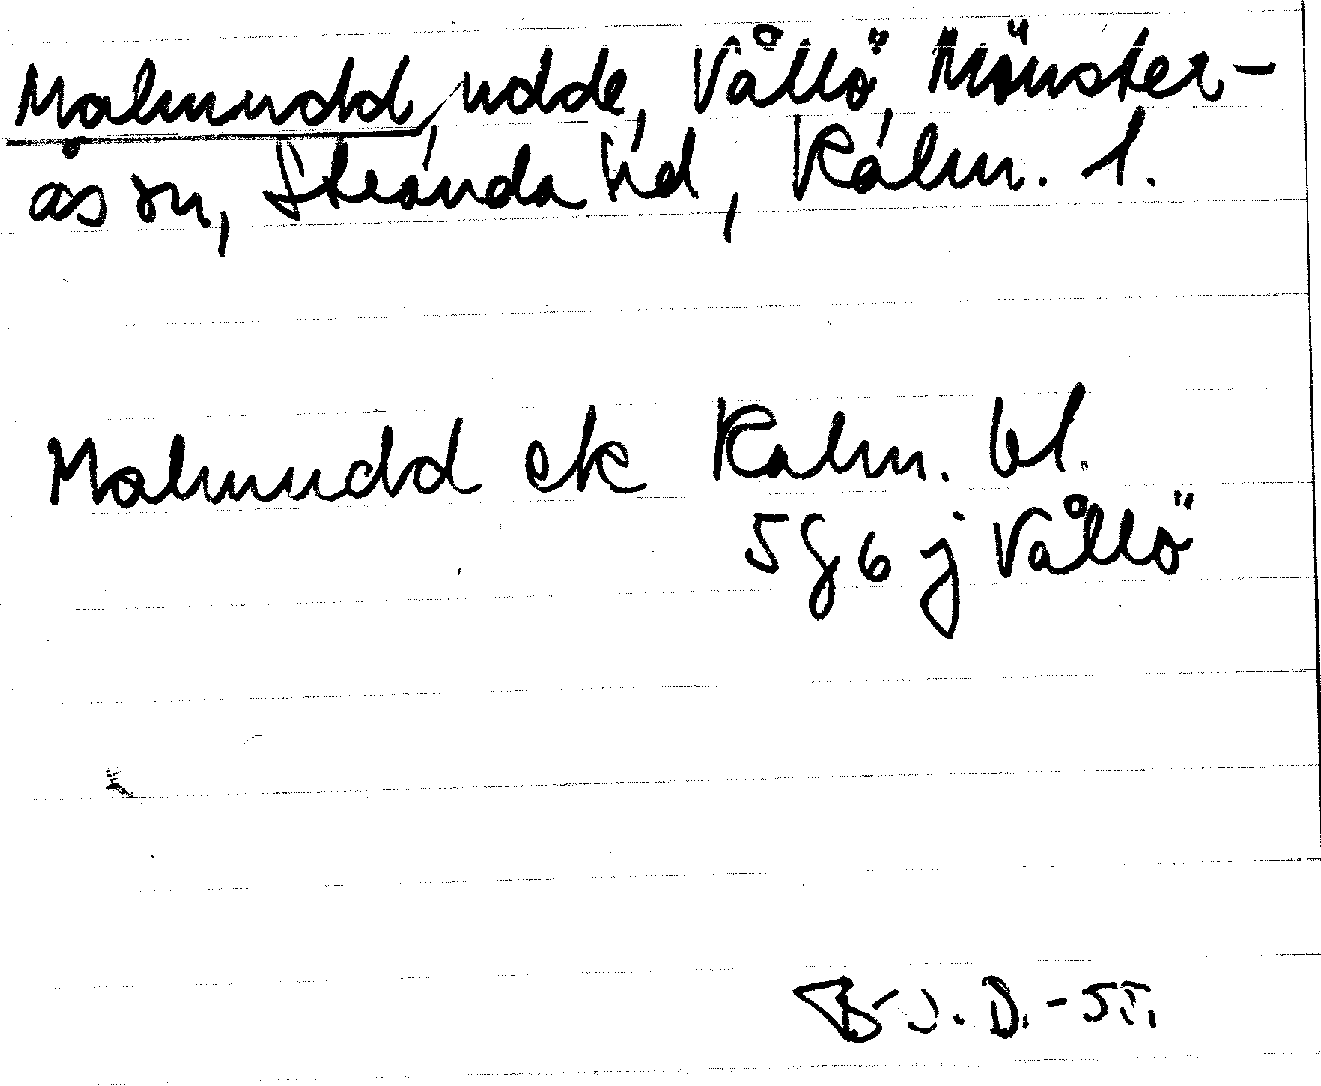 Malmudd, udde, Vållö, Mönster-
ås sn, Stranda hd, Kalm. l.
Malmudd ek Kalm. bl.
5 g 6 j Vållö